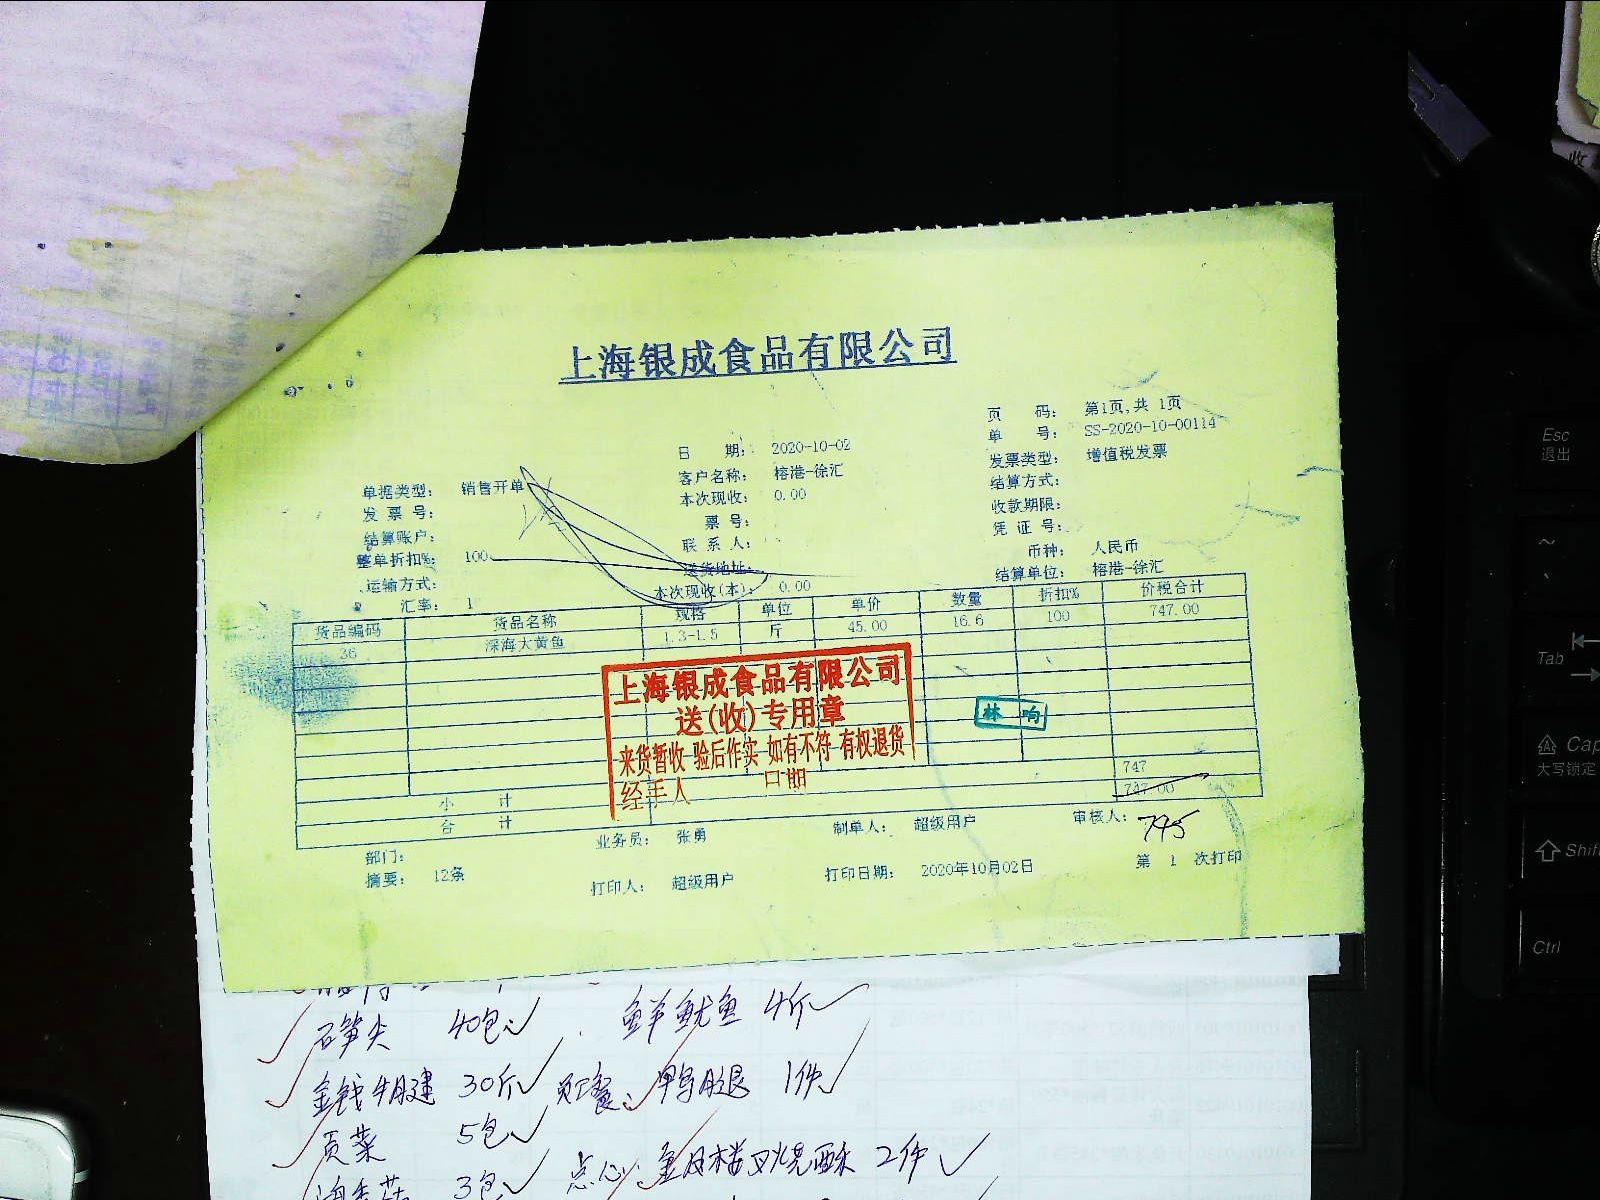 上海银成食品有限公司
页 码: 第1页,共 1页
单 号: SS-2020-10-00114
日 期: 2020-10-02
发票类型: 增值税发票
单据类型: 销售开单
客户名称: 榕港-徐汇
结算方式:
发 票 号:
本次现收: 0.00
收款期限:
结算账户:
票 号:
凭 证 号:
整单折扣%: 100
联 系 人:
币种: 人民币
运输方式:
送货地址:
结算单位: 榕港-徐汇
汇率: 1
本次现收(本): 0.00
货品编码 货品名称 规格 单位 单价 数量 折扣% 价税合计
36 深海大黄鱼 1.3-1.5 斤 45.00 16.6 100 747.00
上海银成食品有限公司
送(收)专用章
来货暂收 验后作实 如有不符 有权退货
经手人 日期
林响
小 计 747
合 计 747.00
745
部门:
业务员: 张勇
制单人: 超级用户
审核人:
摘要: 12条
打印人: 超级用户
打印日期: 2020年10月02日
第 1 次打印
石笋尖 40包 鲜鱿鱼 4斤
金钱牛月建 30斤 员工餐: 鸭腿 1件
贡菜 5包
3包 点心: 2件
Esc
退出
~
Tab
Cap
大写锁定
Shif
Ctrl